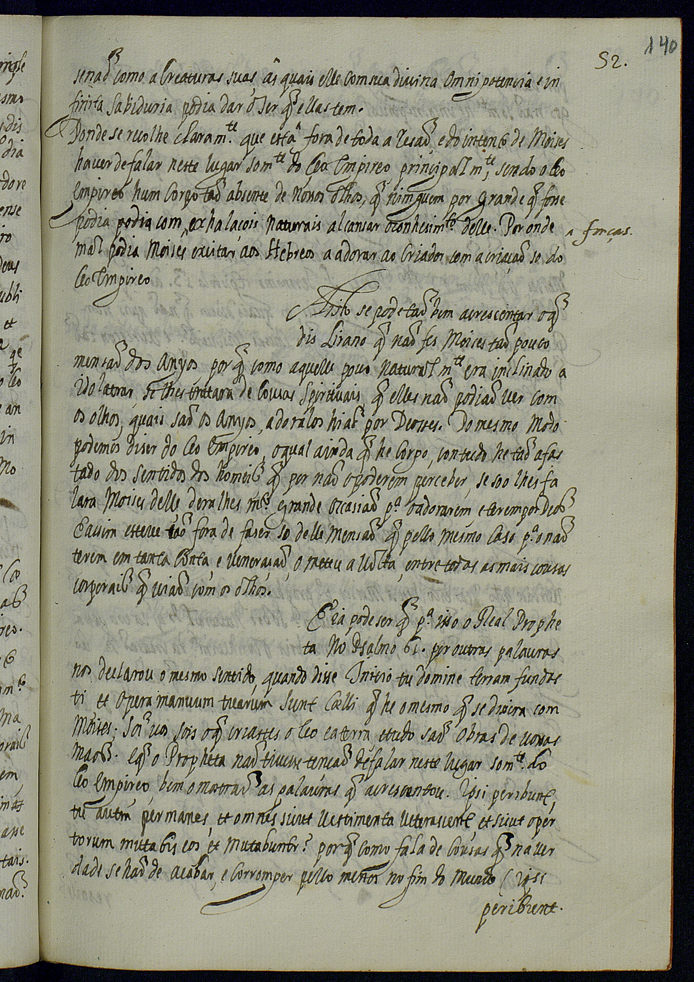 140
52.
senaõ como a Creaturas suas, ás quais elle com sua divina omnipotencia e in
finita Sabiduria podia dar o Ser q̃ ellas tem.
Donde se recolhe claram.te que está fora de toda a resaõ, e do intento de Moises
haver de falar neste lugar som.te do Ceo Empireo principalm.te, sendo o Ceo
Empireo hum Corpo taõ absente de nossos olhos, q̃ ninguem por grande q̃ fosse
podia podia com, exhalacois naturais alcansar o conhecim.to delle. Por onde
a forças.
mal podia Moises excitar aos Hebreos a adorar ao Criador com a criaçaõ so do
Ceo Empireo
A isto se pode taõbem acrescentar o q̃
dis Lirano q̃ naõ fes Moises taõ pouco
mensaõ dos Anjos por q̃ como aquelle povo naturalm.te era inclinado a
Idolatrar, se lhes trattara de Cousas Spirituais, q̃ elles naõ podiaõ ver com
os olhos, quais saõ os Anjos, adoralos hiaõ por Deoses. Do mesmo modo
podemos diser do Ceo Empireo, o qual ainda q̃ he Corpo, contudo he taõ afas
tado dos sentidos dos homeñs q̃ por naõ o poderem perceber, se so lhes fa
lara Moises delle dera lhes grande occasiaõ p.a o adorarem e terem por deos
E assim esteve taõ fora de faser so delle mensaõ q̃ pello mesmo Caso p.a o naõ
terem em tanta Conta e veneraçaõ o metteu a volta, entre todas as mais cousas
corporais q̃ viaõ com os olhos.
E já pode ser q̃ p.a isso o Real Prophe
ta No Psalmo por outras palavras
nos declarou o mesmo sentido, quando disse Initio tu domine terram fundas
ti et Opera manuum tuarum sunt Cæli q̃ he o mesmo q̃ se dixira com
Moises; Sor vos sois o q̃ creastes o Ceo e a terra e tudo saõ Obras de vossas
Maos. E q̃ o Propheta naõ tivesse tensaõ de falar neste lugar som.te do
Ceo Empireo bem o mostraõ as palavras q̃ acrescentou. Ipsi peribunt,
tu autẽ permanes, et omnes sicut vestimenta veterascent, et sicut oper
torium mutabis eos et mutabuntr.? por q̃ como fala de Cousas q̃ na ver
dade se haõ de acabar, e Corromper pello menos no fim do mundo (ipsi
peribunt.